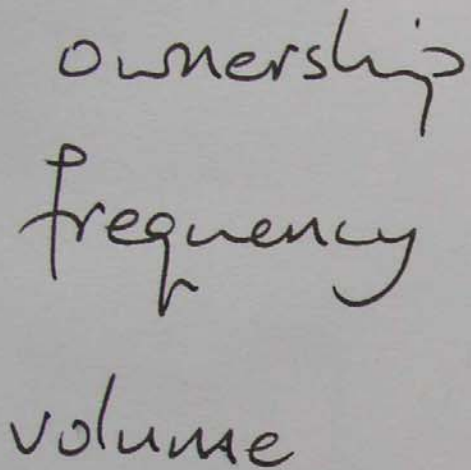 ownership
frequency
volume